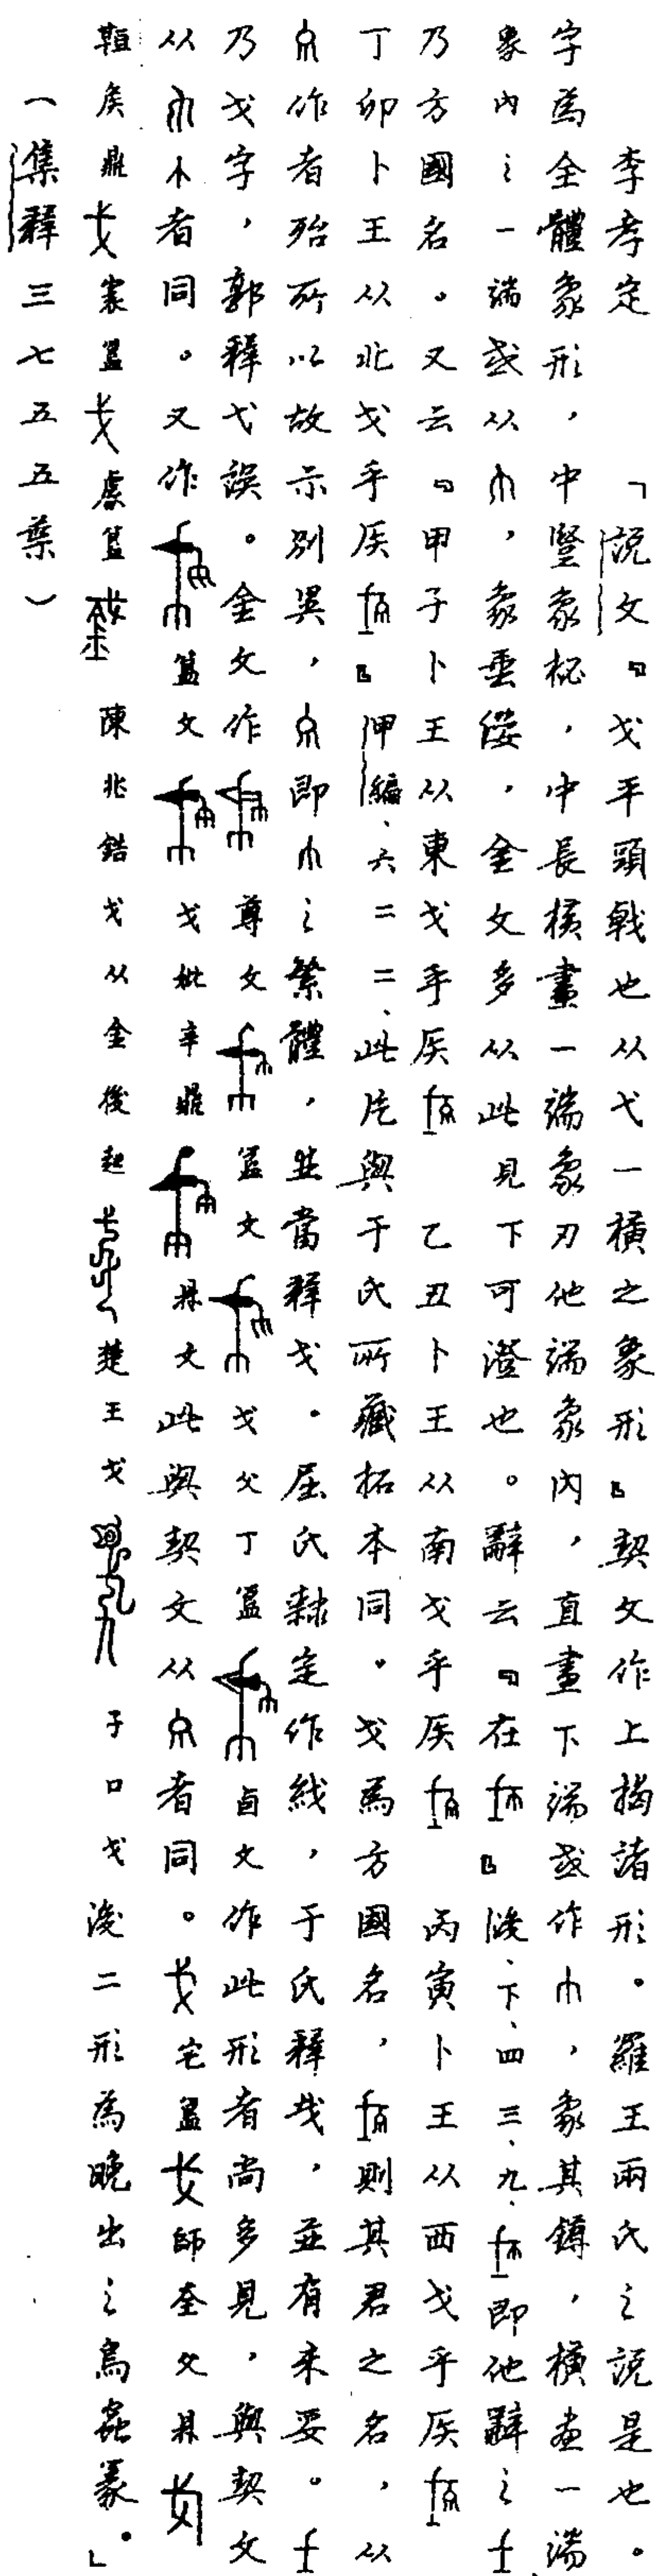 李孝定　「說文『戈平頭戟也从弋一橫之象形』契文作上揭諸形。羅王兩氏之說是也。
字為全體象形，中豎象柲，中長橫畫一端象刃他端象內，直畫下端或作，象其鐏，橫畫一端
象內之一端或从，象垂緌，金文多从此見下可證也。辭云『在』後、下、四三、九、即他辭之
乃方國名。又云『甲子卜王从東戈乎𥎦　乙丑卜王从南戈乎𥎦　丙寅卜王从西戈乎𥎦
丁卯卜王从北戈乎𥎦』甲編、六二二、此片與于氏所藏拓本同。戈為方國名，則其君之名，从
作者殆所以故示別異，即之繁體，並當釋戈。屈氏隸定作，于氏釋，並有未妥。
乃戈字，郭釋弋誤。金文作　尊文　簋文　戈父丁簋　卣文作此形者尚多見，與契文
从不者同。又作　簋文　戈妣辛鼎　鼎文此與契文从者同。宅簋師奎父鼎
𥎦鼎寰簋簋　陳𨥫戈从金後起楚王戈　子口戈後二形為晚出之鳥蟲篆。」
（集釋三七五五葉）